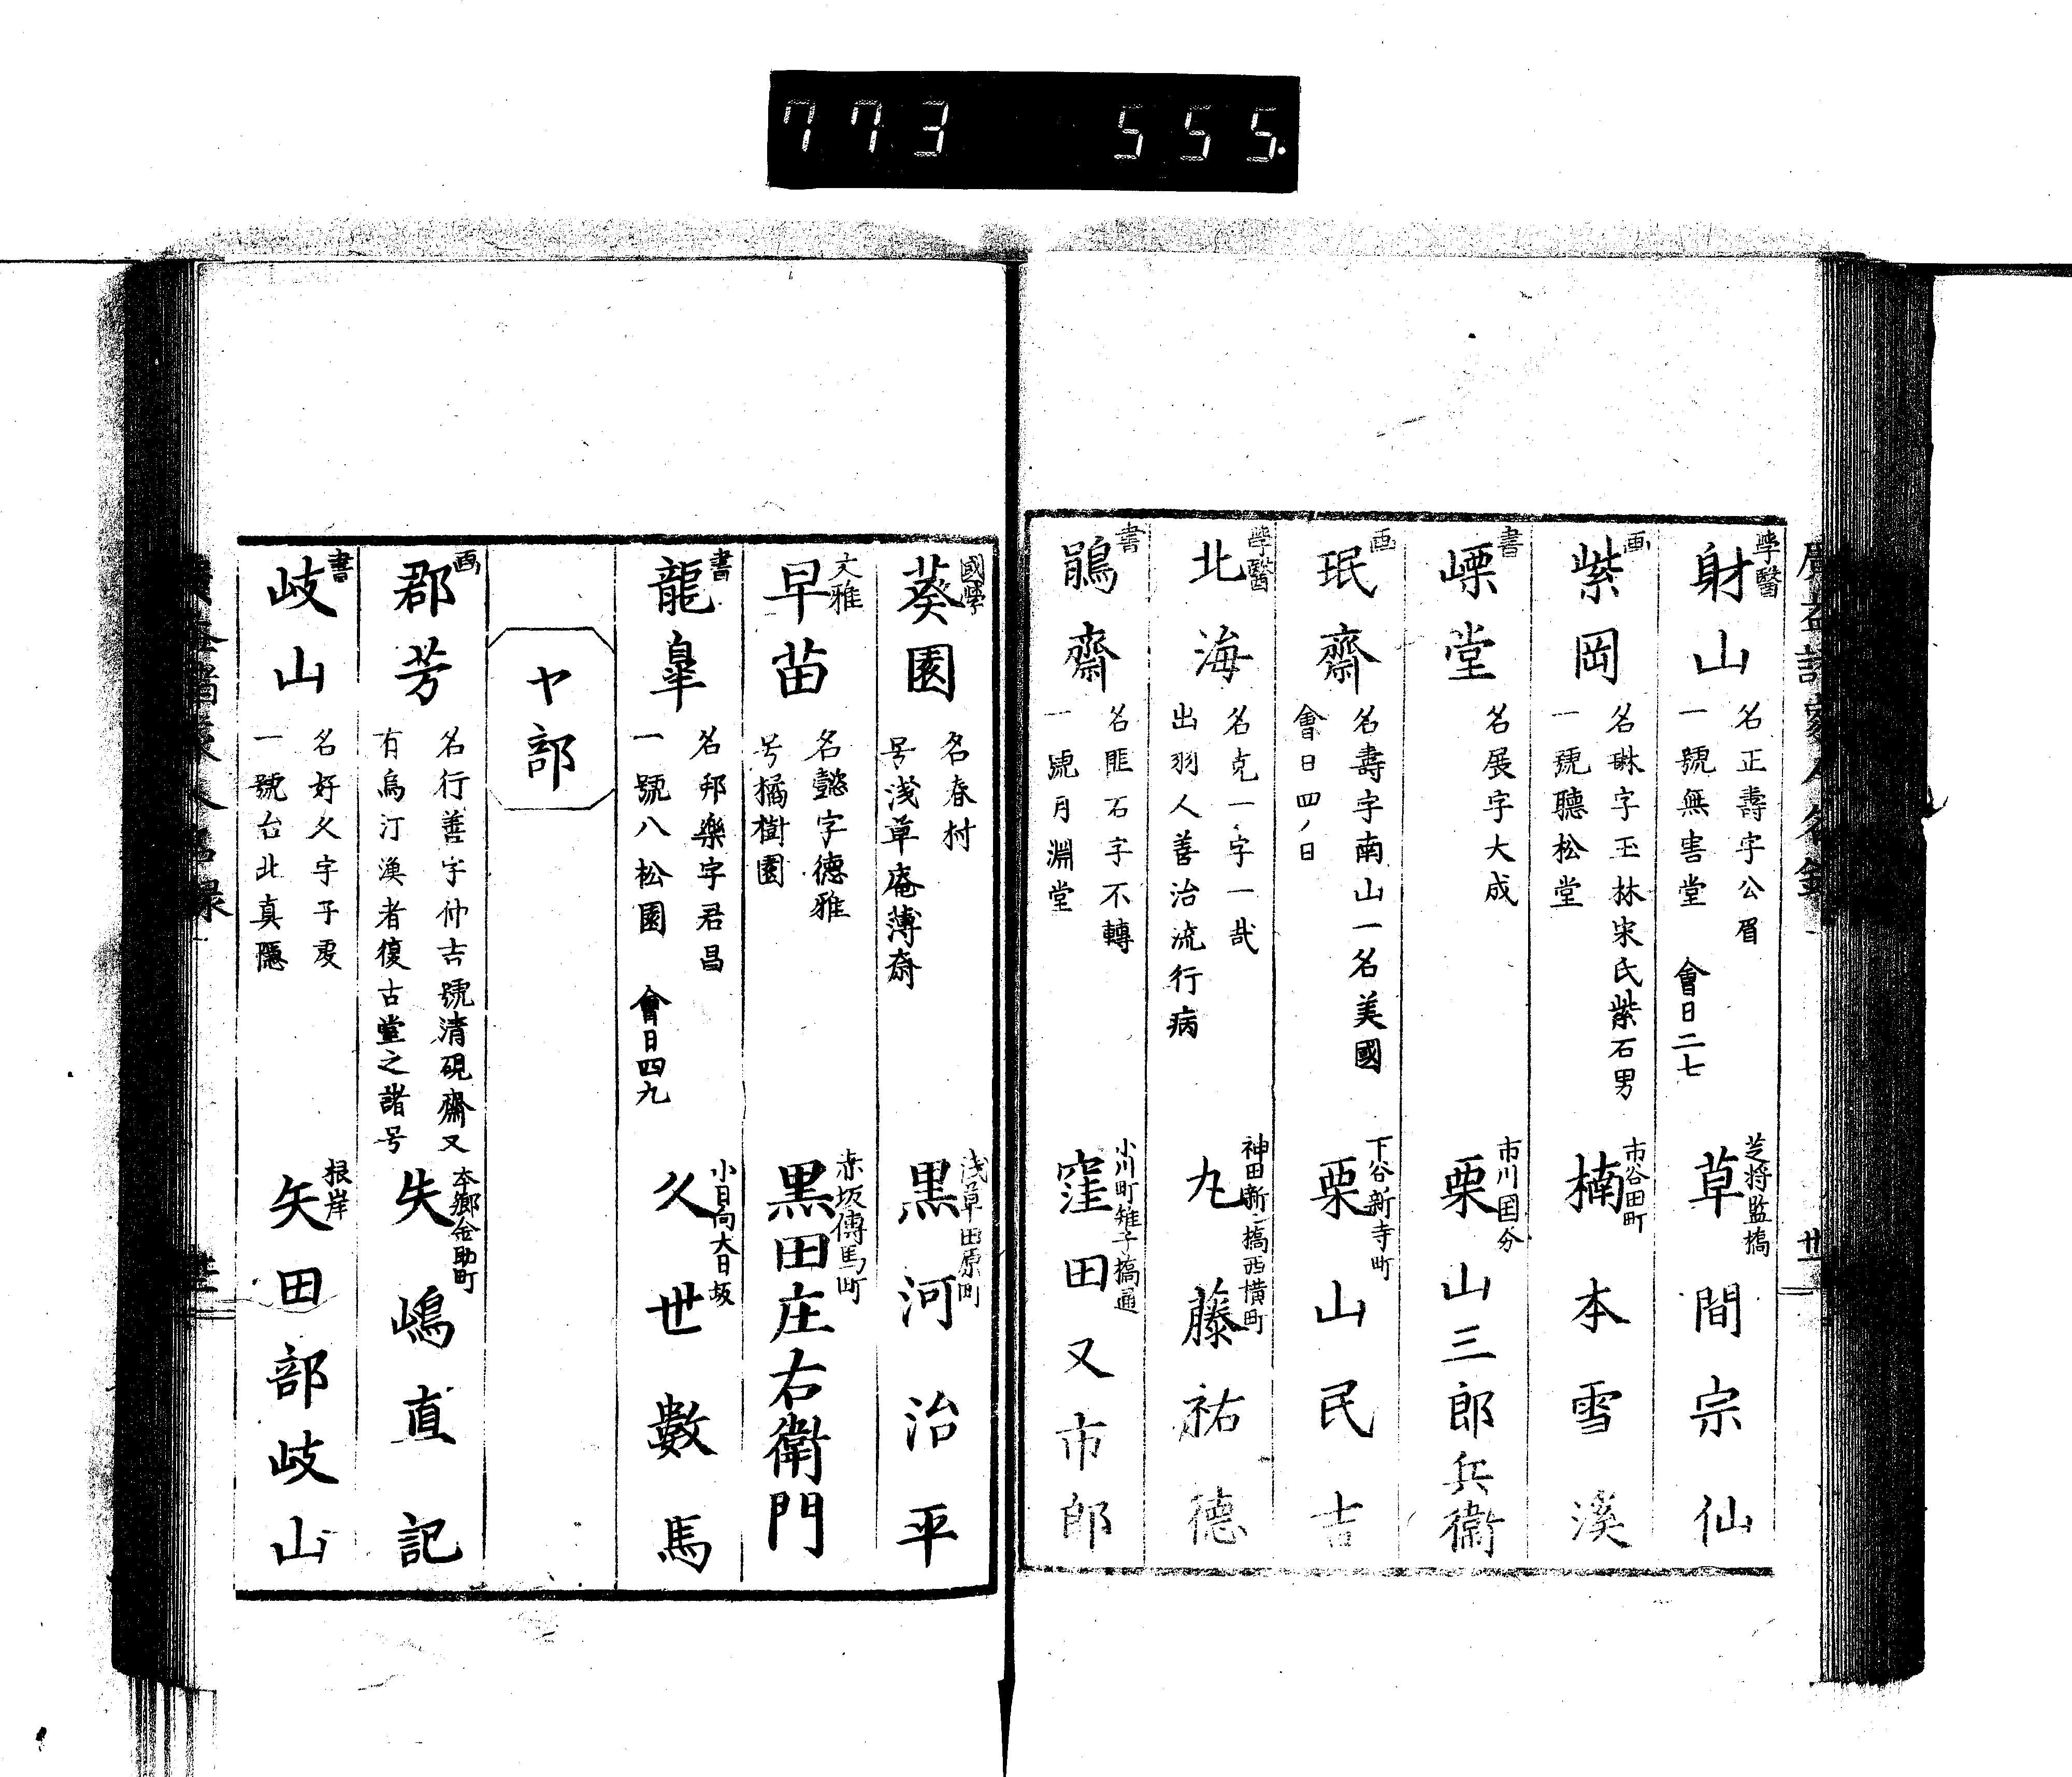 773 555.
學醫
射山
名正壽字公眉
一號無害堂 會日二七
芝将監橋
草間宗仙
画
紫岡
名琳字玉林宋氏紫石男
一號聽松堂
市谷田町
楠本雪溪
書
嶫堂
名展字大成
市川国分
栗山三郎兵衞
画
珉齋
名壽字南山一名美國
會日四ノ日
下谷新寺町
栗山民吉
學醫
北海
名克一字一哉
出羽人善治流行病
神田新シ橋西横町
九藤祐德
書
鵑齋
名匪石字不轉
一號月淵堂
小川町雉子橋通
窪田又市郎
國學
葵園
名春村
号浅草庵薄斎
浅草田原町
黒河治平
文雅
早苗
名懿字德雅
号橘樹園
赤坂傳馬町
黒田庄右衛門
書
龍皐
名邦樂字君昌
一號八松園 會日四九
小日向大日坂
久世數馬
ヤ部
画
郡芳
名行善字仲吉號清硯齋又
有烏汀漁者復古堂之諸号
本郷金助町
矢嶋直記
書
岐山
名好久字子
一號台北真隱
根岸
矢田部岐山